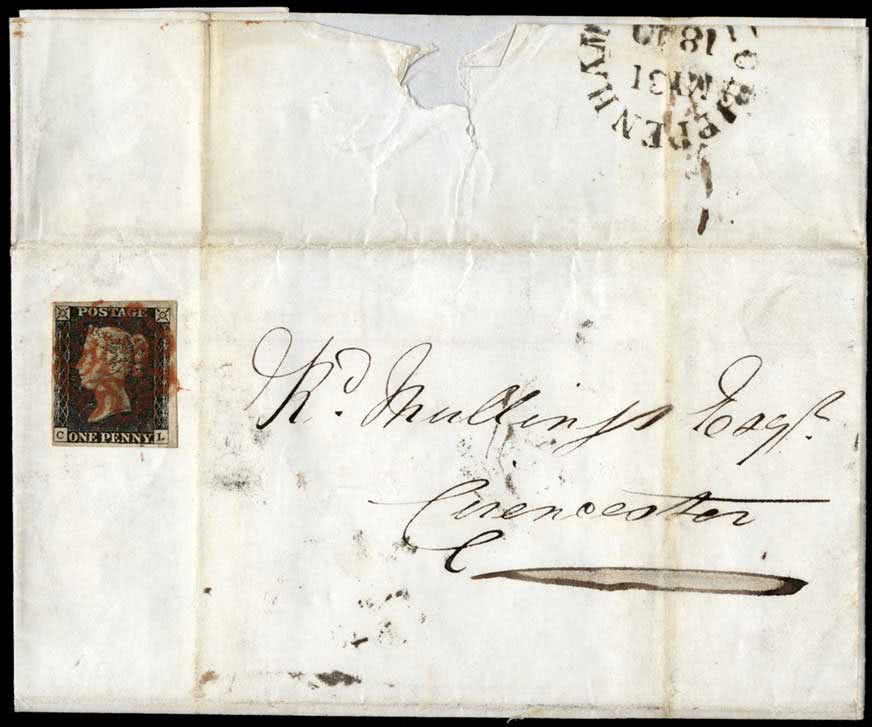 MY 31
POSTAGE
C ONE PENNY L
Rd. Mullings Esqr.
Cirencester